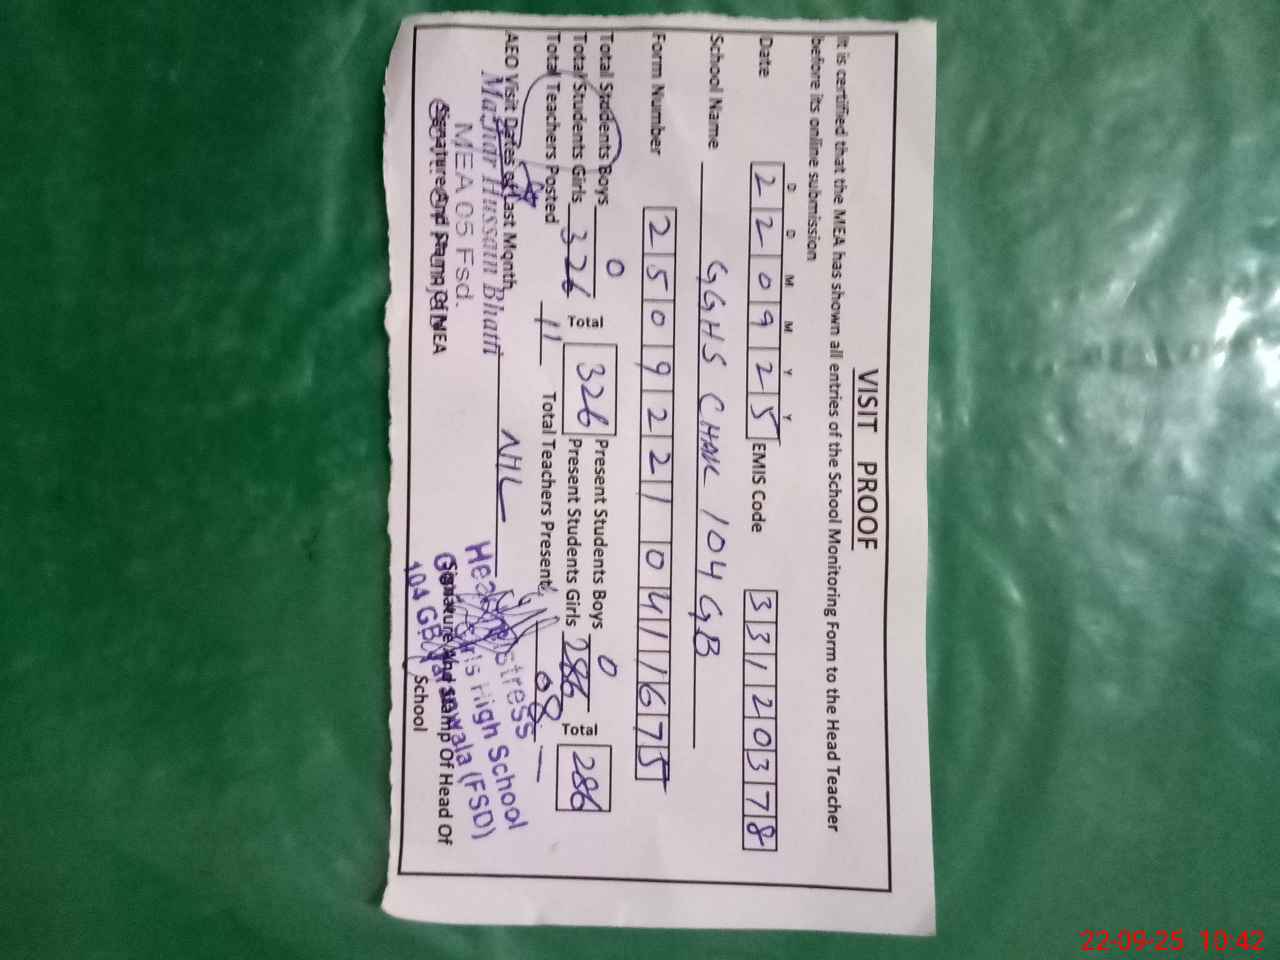 VISIT PROOF
It is certified that the MEA has shown all entries of the School Monitoring Form to the Head Teacher
before its online submission
D D M M Y Y
Date 2 2 0 9 2 5 EMIS Code 3 3 1 2 0 3 7 8
School Name GGHS CHAK 104 GB
Form Number 2 5 0 9 2 2 1 0 4 1 1 6 7 5
Total Students Boys 0 Present Students Boys 0
Total Students Girls 326 Total 326 Present Students Girls 286 Total 286
Total Teachers Posted 11 Total Teachers Present 08
AEO Visit Dates of Last Month NHL
Mazhar Hussain Bhatti
MEA 05 Fsd.
Signature And Stamp Of MEA
Headmistress
Girls High School
104 GB (FSD)
Signature And Stamp Of Head Of
School
22-09-25 10:42